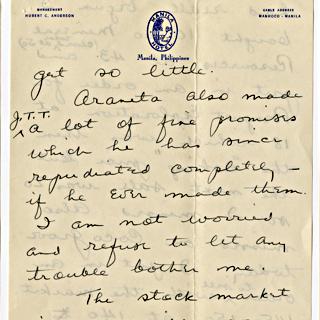 MANAGEMENT
HUBERT C. ANDERSON
MANILA
HOTEL
CABLE ADDRESS
MANHOCO - MANILA
Manila, Philippines
get so little.
Araneta also made
J.T.T. ^ a lot of fine promises
which he has since
repudiated completely –
if he ever made them.
I am not worried
and refuse to let any
trouble bother me.
The stock market